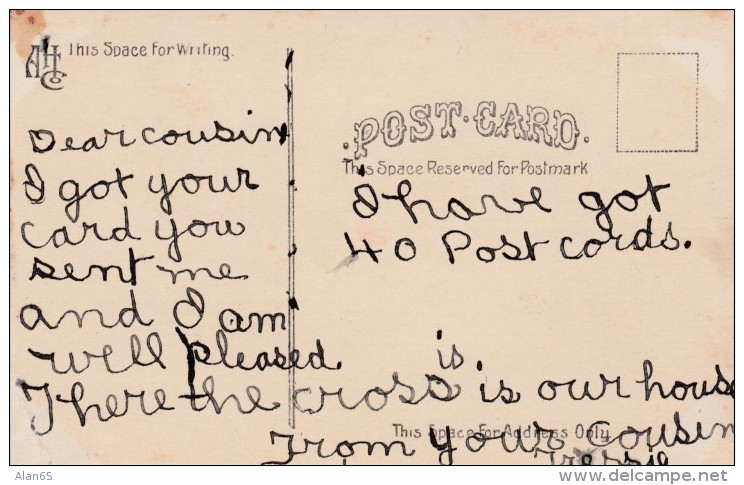 AHCo
This Space For Writing.
Dear cousin
I got your
card you
sent me
and I am
well pleased.
POST-CARD.
This Space Reserved For Postmark
I have got
40 Post cards.
is.
Where the cross is our house
This Space For Address Only
From your Cousin
Alan65
© delcampe.net